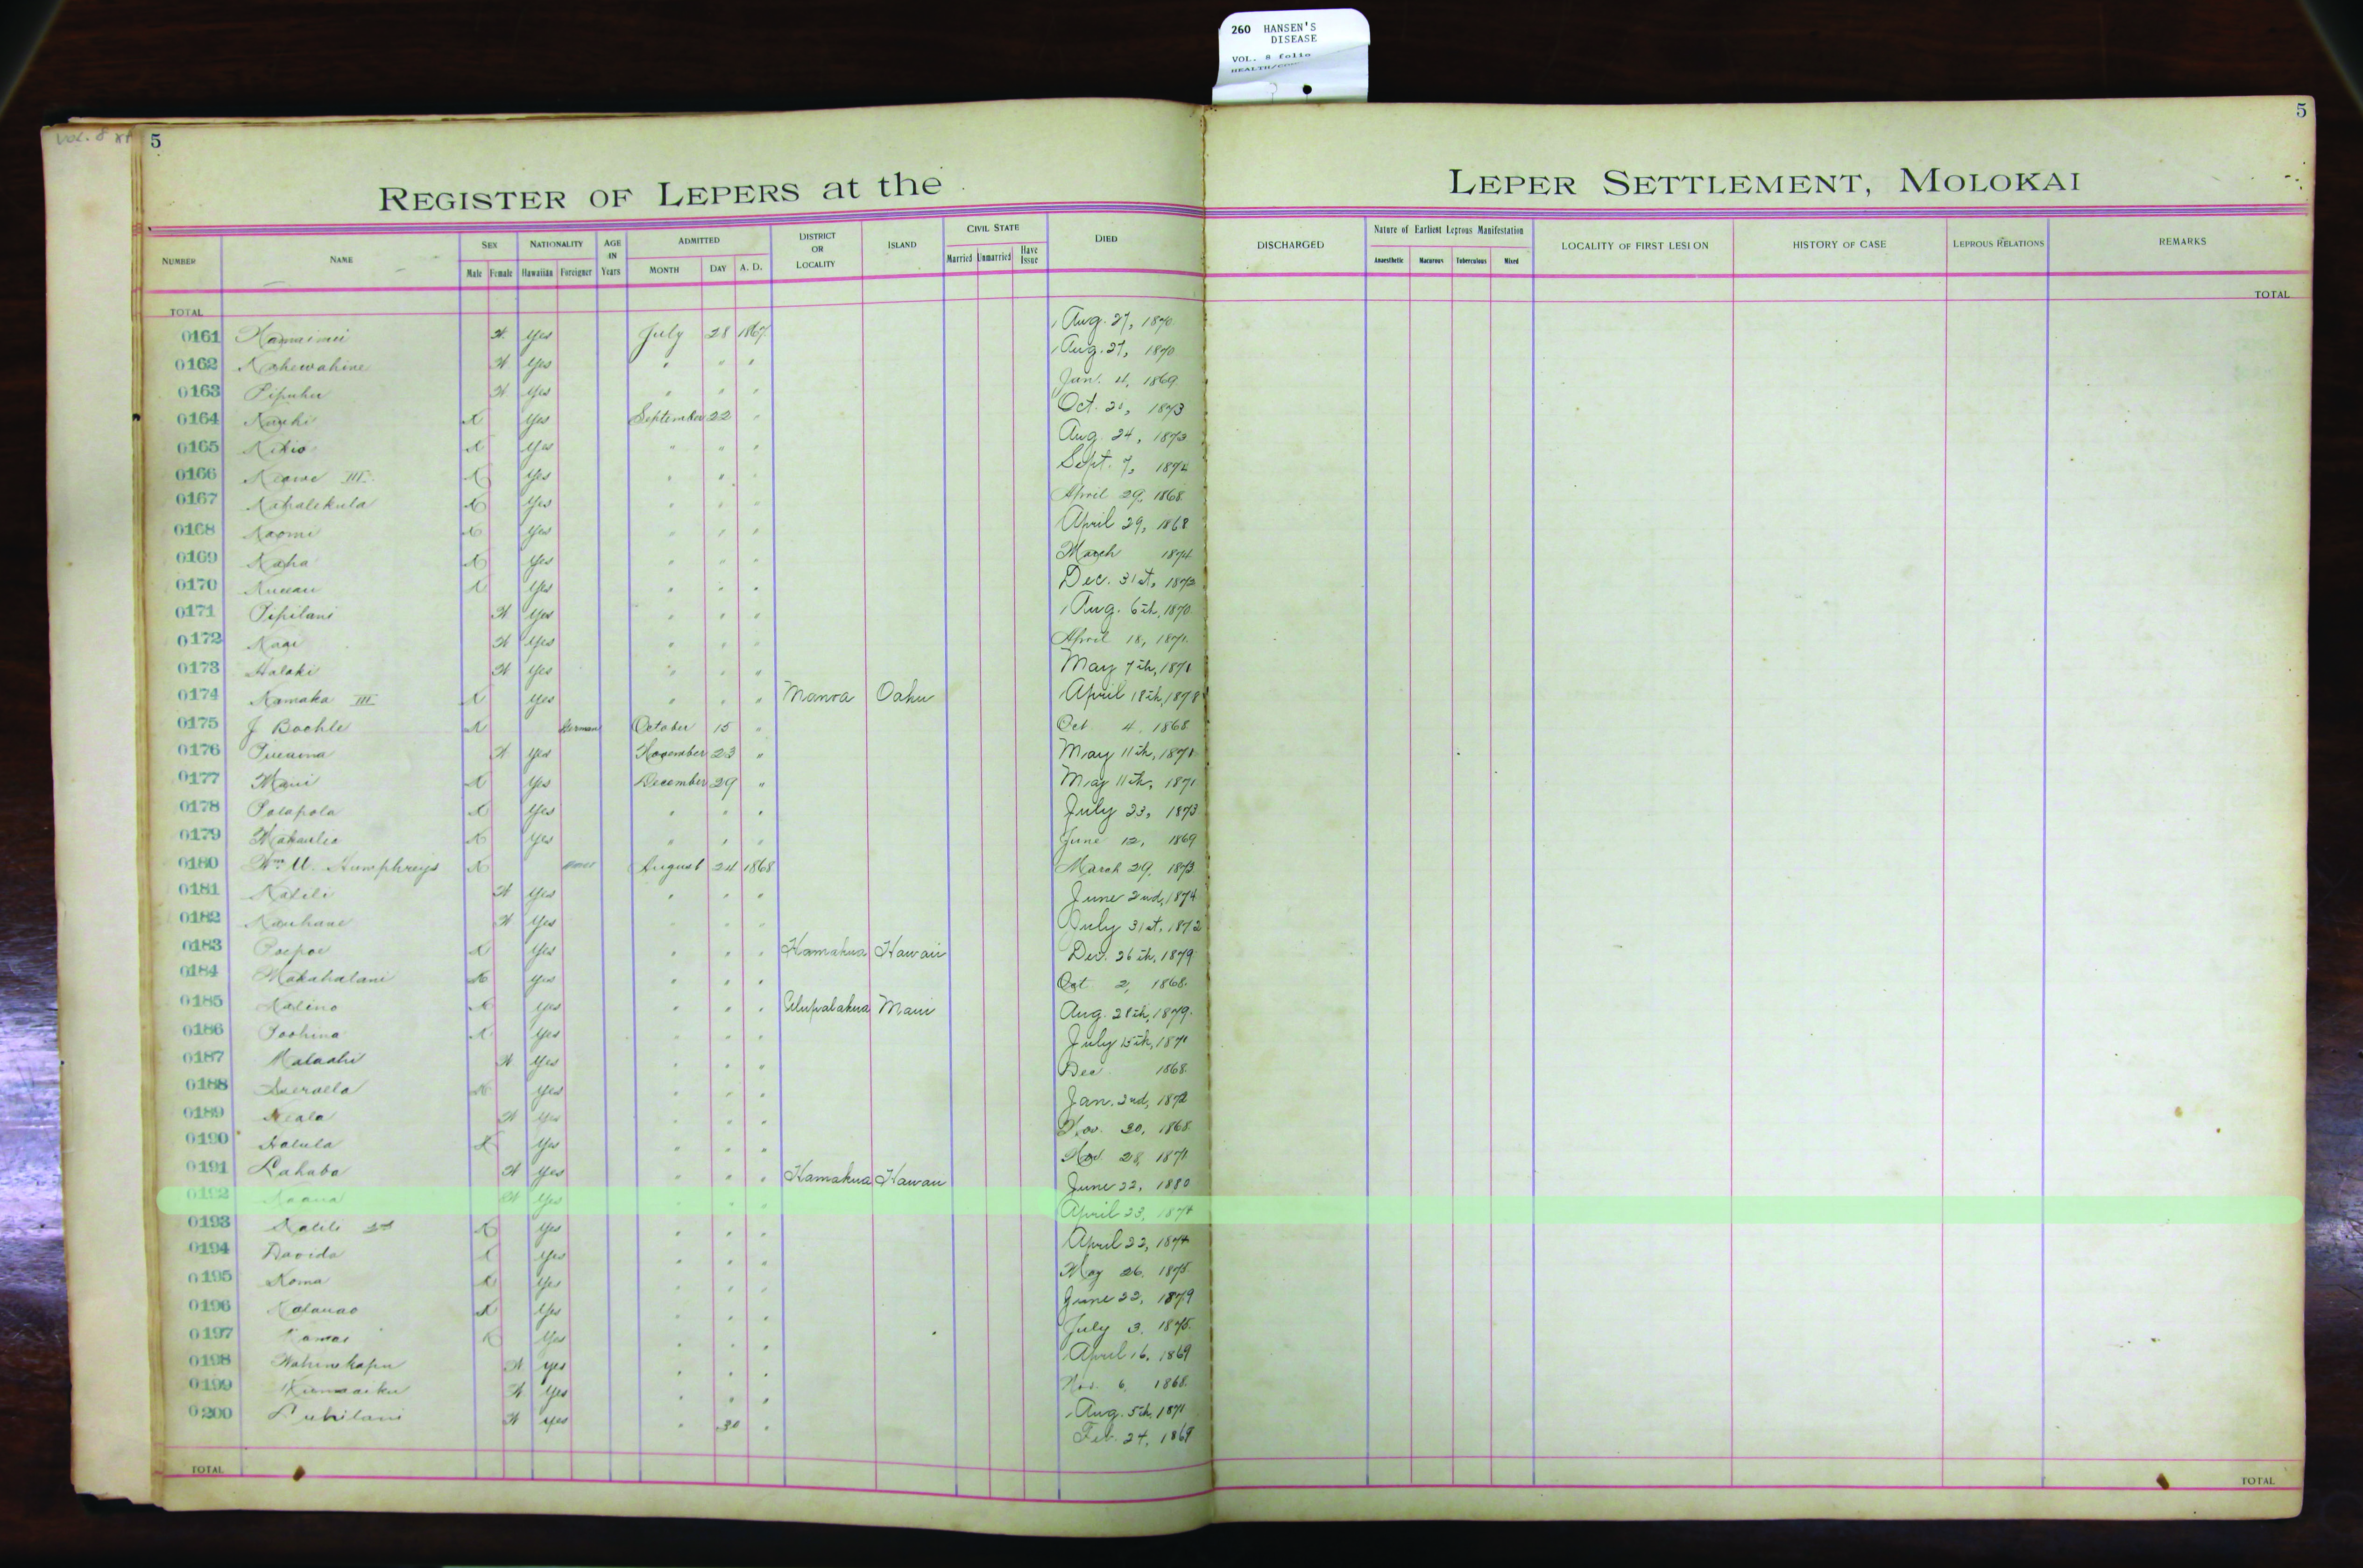 260 HANSEN'S
DISEASE
VOL. 8 folio
VOL. 8
5
5
REGISTER OF LEPERS at the LEPER SETTLEMENT, MOLOKAI
NUMBER NAME SEX Male Female NATIONALITY Hawaiian Foreigner AGE IN Years ADMITTED MONTH DAY A. D. DISTRICT OR LOCALITY ISLAND CIVIL STATE Married Unmarried Have Issue DIED DISCHARGED Nature of Earliest Leprous Manifestation Anaesthetic Macurous Tuberculous Mixed LOCALITY OF FIRST LESION HISTORY OF CASE LEPROUS RELATIONS REMARKS
TOTAL TOTAL
0161 Yes July 28 1867 Aug. 27, 1870
0162 Kahewahine Yes " " " Aug. 27, 1870
0163 Pipuhu Yes " " " Jan. 4, 1869
0164 Yes September 22 " Oct. 1873
0165 Kikio Yes " " " Aug. 24, 1873
0166 Keawe III Yes " " " Sept. 7, 1874
0167 Kahalekula Yes " " " April 29, 1868
0168 Naomi Yes " " " April 29, 1868
0169 Kaha Yes " " " March 1874
0170 Yes " " " Dec. 31st,
0171 Pipilani Yes " " " Aug. 6th, 1870
0172 Yes " " " April 18, 1871
0173 Halaki Yes " " " May 7th, 1871
0174 Kamaka III Yes " " " Manoa Oahu April 18th, 1878
0175 J Boehle German October 15 " Oct 4, 1868
0176 Yes November 23 " May 11th, 1871
0177 Maui Yes December 29 " May 11th, 1871
0178 Polapola Yes " " " July 23, 1873
0179 Yes " " " June 12, 1869
0180 Wm. Humphreys August 24 1868 March 29, 1873
0181 Kalili Yes " " " June 2nd, 1874
0182 Kauhane Yes " " " July 31st, 1872
0183 Poepoe Yes " " " Hamakua Hawaii Dec. 26th, 1879
0184 Makahalani Yes " " " Oct 2, 1868
0185 Kalino Yes " " " Ulupalakua Maui Aug. 28th, 1879
0186 Poohina Yes " " " July 15th, 1871
0187 Malaahi Yes " " " Dec 1868
0188 Yes " " " Jan. 2nd, 1872
0189 Yes " " " Nov. 30, 1868
0190 Halula Yes " " " Nov. 28, 1871
0191 Lahaba Yes " " " Hamakua Hawaii June 22, 1880
0192 Yes " " " April 23, 1874
0193 Kalili 2nd Yes " " " April 22, 1874
0194 Davida Yes " " " May 26, 1875
0195 Koma Yes " " " June 22, 1879
0196 Yes " " " July 3, 1875
0197 Kamai Yes " " " April 16, 1869
0198 Wahinekapu Yes " " " Nov. 6, 1868
0199 Yes " " " Aug. 5th, 1871
0200 Yes " 30 " Feb. 24, 1869
TOTAL TOTAL